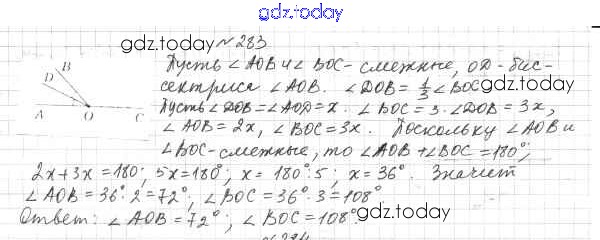 gdz.today
gdz.today №283
Пусть ∠AOB и ∠BOC - смежные, OD - бис-
сектриса ∠AOB. ∠DOB = 1/3 ∠BOC gdz.today
Пусть ∠DOB = ∠AOD = x. ∠BOC = 3·∠DOB = 3x,
∠AOB = 2x, ∠BOC = 3x. Поскольку ∠AOB и
∠BOC - смежные, то ∠AOB + ∠BOC = 180°;
B
D
A O C
gdz.today
2x + 3x = 180°; 5x = 180°; x = 180°:5; x = 36°. Значит
∠AOB = 36°·2 = 72°; ∠BOC = 36°·3 = 108°
Ответ: ∠AOB = 72°; ∠BOC = 108° gdz.today
gdz.today
№284